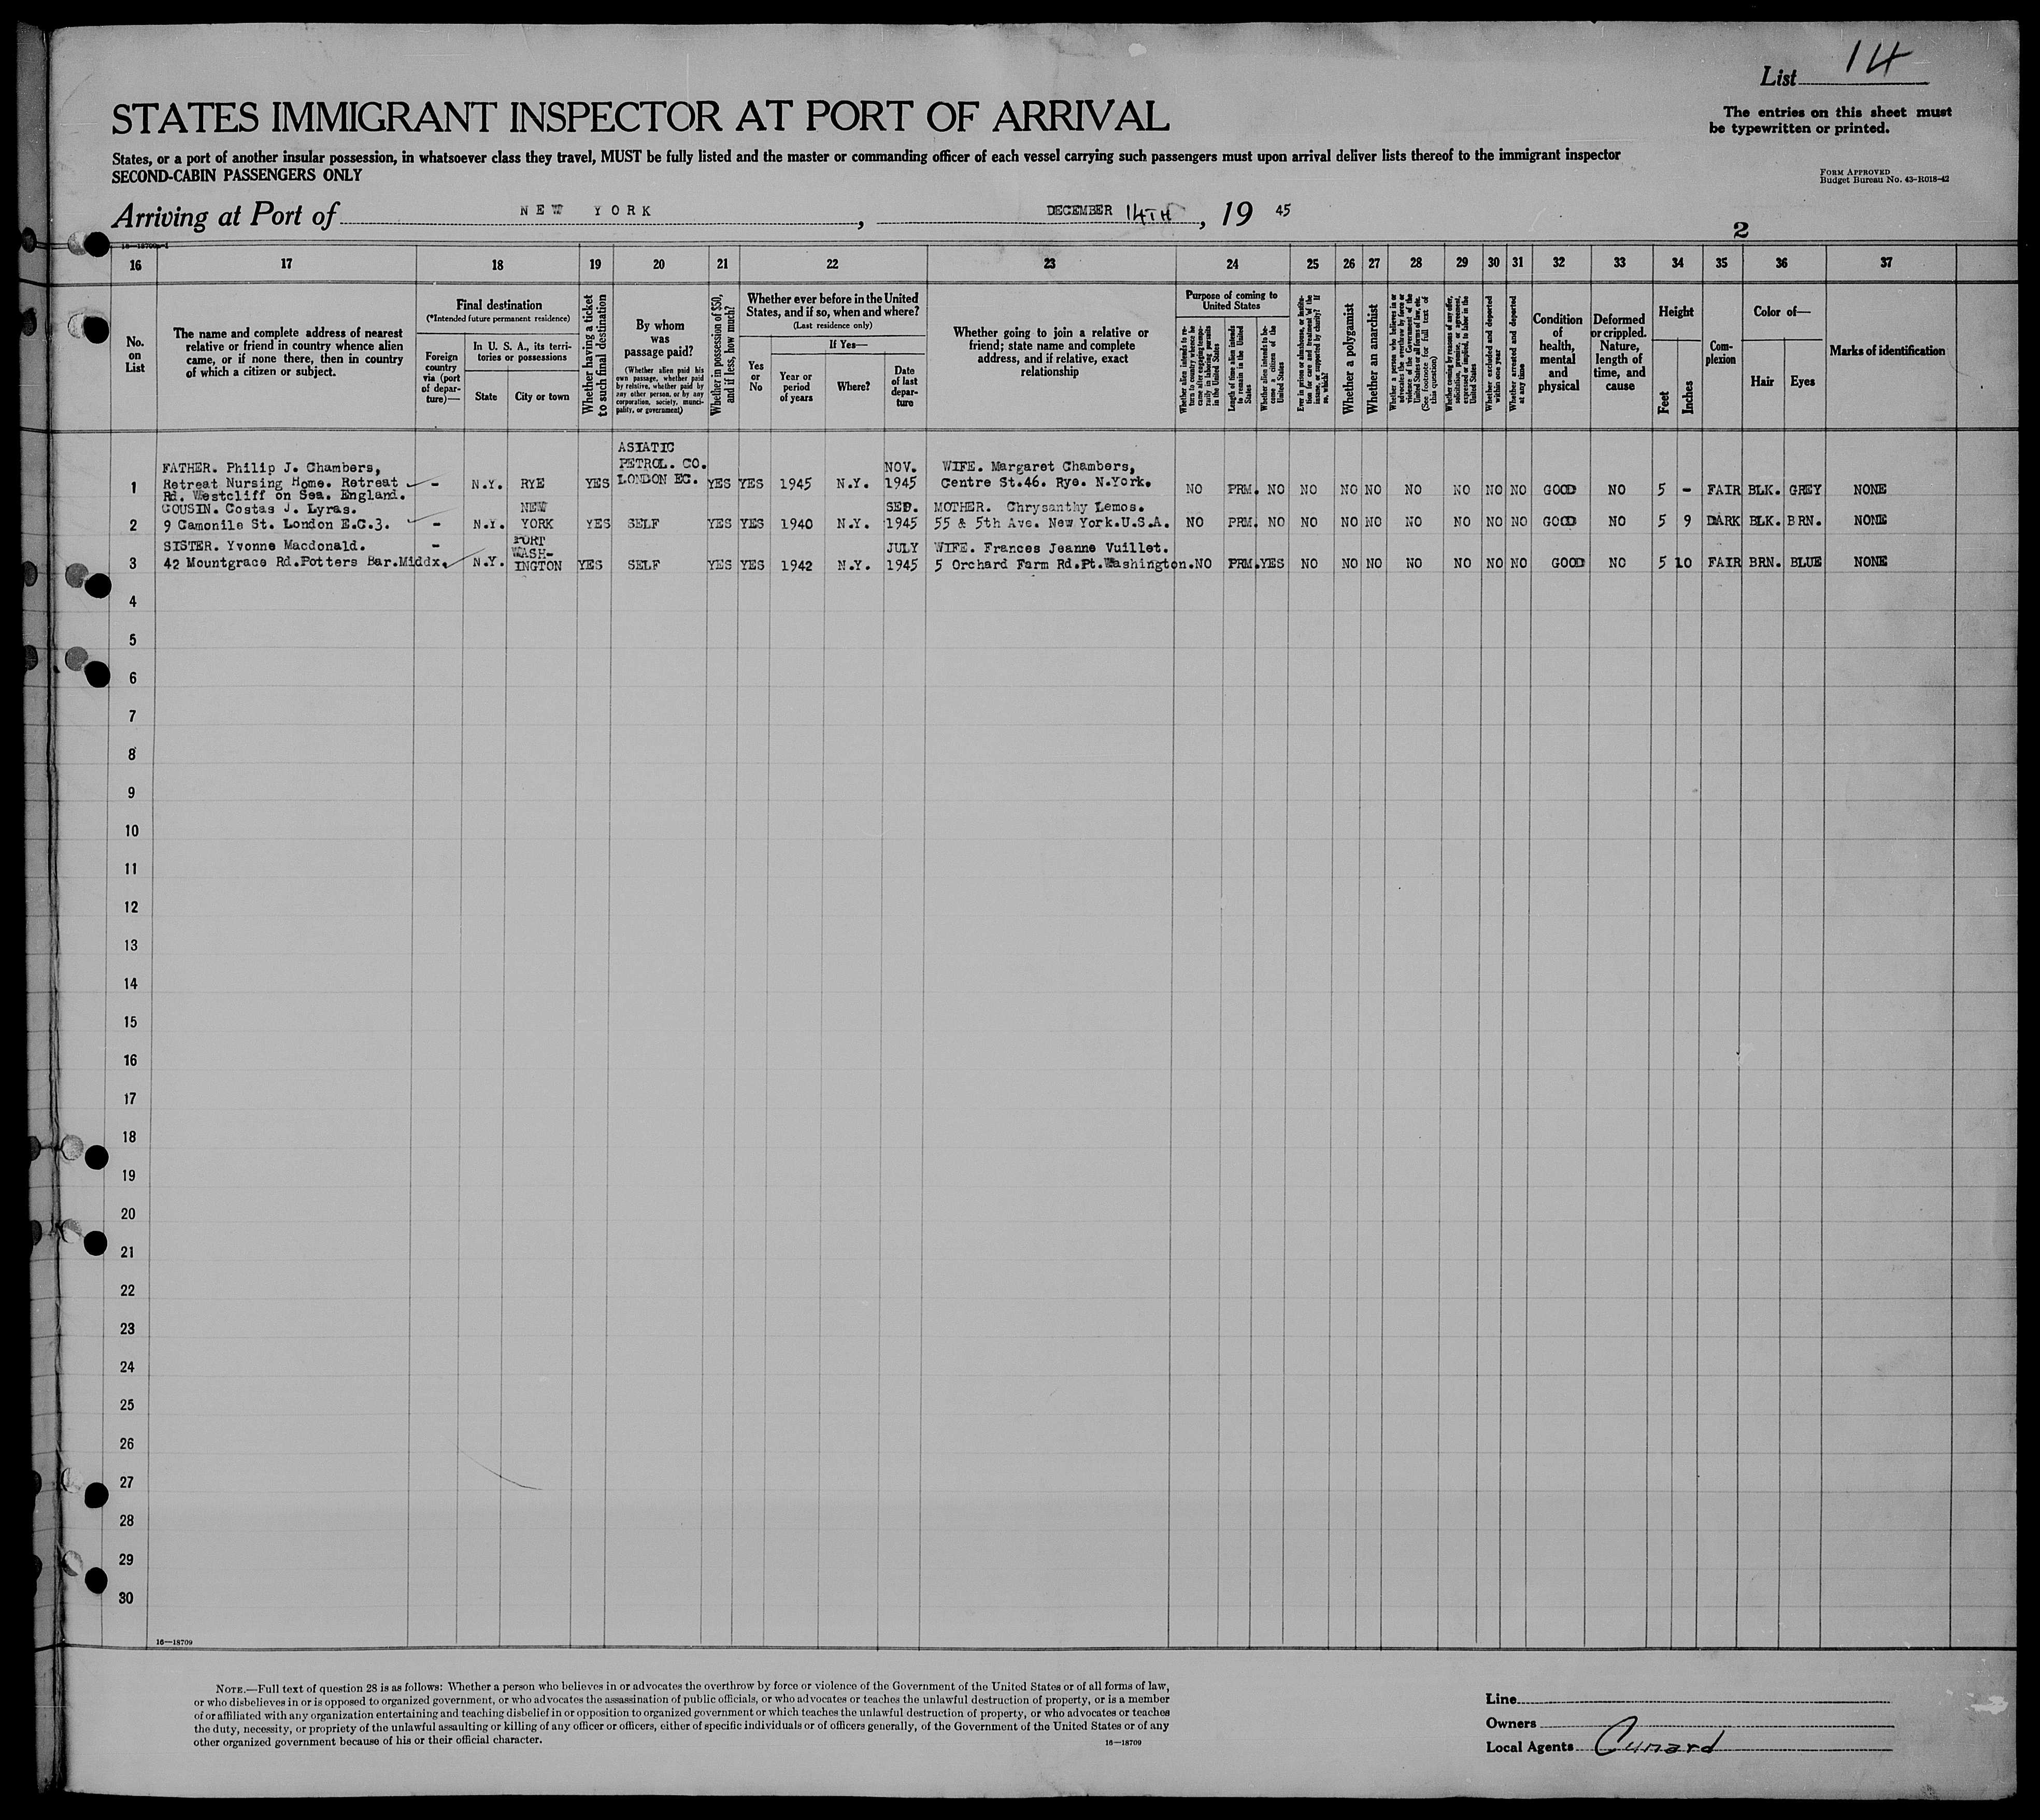 List 14
The entries on this sheet must
be typewritten or printed.
STATES IMMIGRANT INSPECTOR AT PORT OF ARRIVAL
States, or a port of another insular possession, in whatsoever class they travel, MUST be fully listed and the master or commanding officer of each vessel carrying such passengers must upon arrival deliver lists thereof to the immigrant inspector
SECOND-CABIN PASSENGERS ONLY
FORM APPROVED
Budget Bureau No. 43-R018-42
Arriving at Port of NEW YORK, DECEMBER 14TH, 19 45
2
16 17 18 19 20 21 22 23 24 25 26 27 28 29 30 31 32 33 34 35 36 37
No.
on
List
The name and complete address of nearest
relative or friend in country whence alien
came, or if none there, then in country
of which a citizen or subject.
Final destination
(*Intended future permanent residence)
Foreign
country
via (port
of depar-
ture)—
In U. S. A., its terri-
tories or possessions
State
City or town
Whether having a ticket
to such final destination
By whom
was
passage paid?
(Whether alien paid his
own passage, whether paid
by relative, whether paid by
any other person, or by any
corporation, society, munci-
pality, or government)
Whether in possession of $50,
and if less, how much?
Whether ever before in the United
States, and if so, when and where?
(Last residence only)
Yes
or
No
If Yes—
Year or
period
of years
Where?
Date
of last
depar-
ture
Whether going to join a relative or
friend; state name and complete
address, and if relative, exact
relationship
Purpose of coming to
United States
Length of time alien intends
to remain in the United
States
Whether alien intends to be-
come a citizen of the
United States
Whether a polygamist
Whether an anarchist
Whether excluded and deported
within one year
Whether arrested and deported
at any time
Condition
of
health,
mental
and
physical
Deformed
or crippled.
Nature,
length of
time, and
cause
Height
Feet
Inches
Com-
plexion
Color of—
Hair
Eyes
Marks of identification
1
FATHER. Philip J. Chambers,
Retreat Nursing Home. Retreat
Rd. Westcliff on Sea. England.
- N.Y. RYE YES
ASIATIC
PETROL. CO.
LONDON EC.
YES YES 1945 N.Y.
NOV.
1945
WIFE. Margaret Chambers,
Centre St.46. Rye. N.York.
NO PRM. NO NO NO NO NO NO NO NO GOOD NO 5 - FAIR BLK. GREY NONE
2
COUSIN. Costas J. Lyras.
9 Camonile St. London E.C.3.
- N.Y.
NEW
YORK
YES SELF YES YES 1940 N.Y.
SEP.
1945
MOTHER. Chrysanthy Lemos.
55 & 5th Ave. New York.U.S.A.
NO PRM. NO NO NO NO NO NO NO NO GOOD NO 5 9 DARK BLK. BRN. NONE
3
SISTER. Yvonne Macdonald.
42 Mountgrace Rd.Potters Bar.Middx.
- N.Y.
PORT
WASH-
INGTON
YES SELF YES YES 1942 N.Y.
JULY
1945
WIFE. Frances Jeanne Vuillet.
5 Orchard Farm Rd.Pt.Washington.
NO PRM. YES NO NO NO NO NO NO NO GOOD NO 5 10 FAIR BRN. BLUE NONE
4
5
6
7
8
9
10
11
12
13
14
15
16
17
18
19
20
21
22
23
24
25
26
27
28
29
30
16—18709
NOTE.—Full text of question 28 is as follows: Whether a person who believes in or advocates the overthrow by force or violence of the Government of the United States or of all forms of law,
or who disbelieves in or is opposed to organized government, or who advocates the assassination of public officials, or who advocates or teaches the unlawful destruction of property, or is a member
of or affiliated with any organization entertaining and teaching disbelief in or opposition to organized government or which teaches the unlawful destruction of property, or who advocates or teaches
the duty, necessity, or propriety of the unlawful assaulting or killing of any officer or officers, either of specific individuals or of officers generally, of the Government of the United States or of any
other organized government because of his or their official character.
16—18709
Line
Owners
Local Agents Cunard